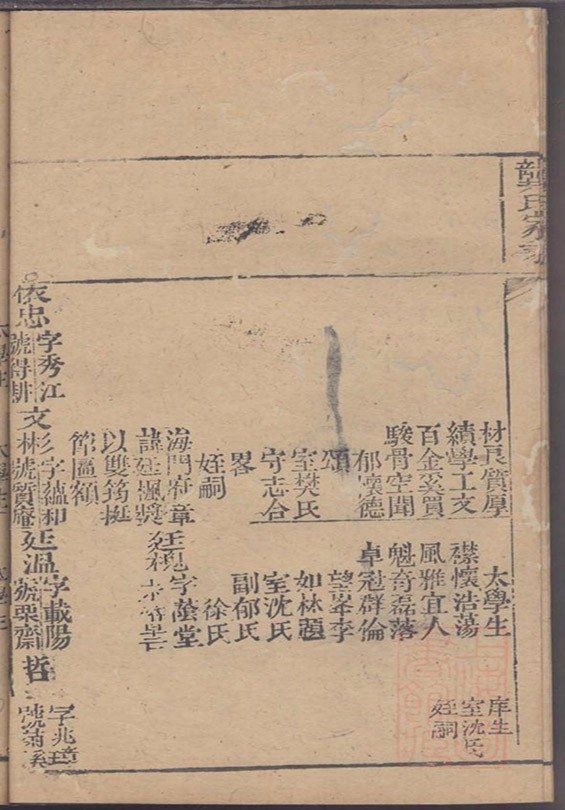 龔氏
材良質厚
績學工文
百金奚買
駿骨空聞
郁懷德
頌
室樊氏
守志合
畧
姪嗣
海門府章
諱廷楓獎
以雙筠挺
節匾額
太學生
襟懷浩蕩
風雅宜人
魁奇磊落
卓冠群倫
望峯李
如林題
室沈氏
副郁氏
徐氏
廷槐字蔭堂
庠生
室沈氏
姪嗣
依忠
字秀江
號得耕
文彬
字蘊和
號質庵
廷溫
字載陽
號栗齋
哲
字兆璋
號菊溪